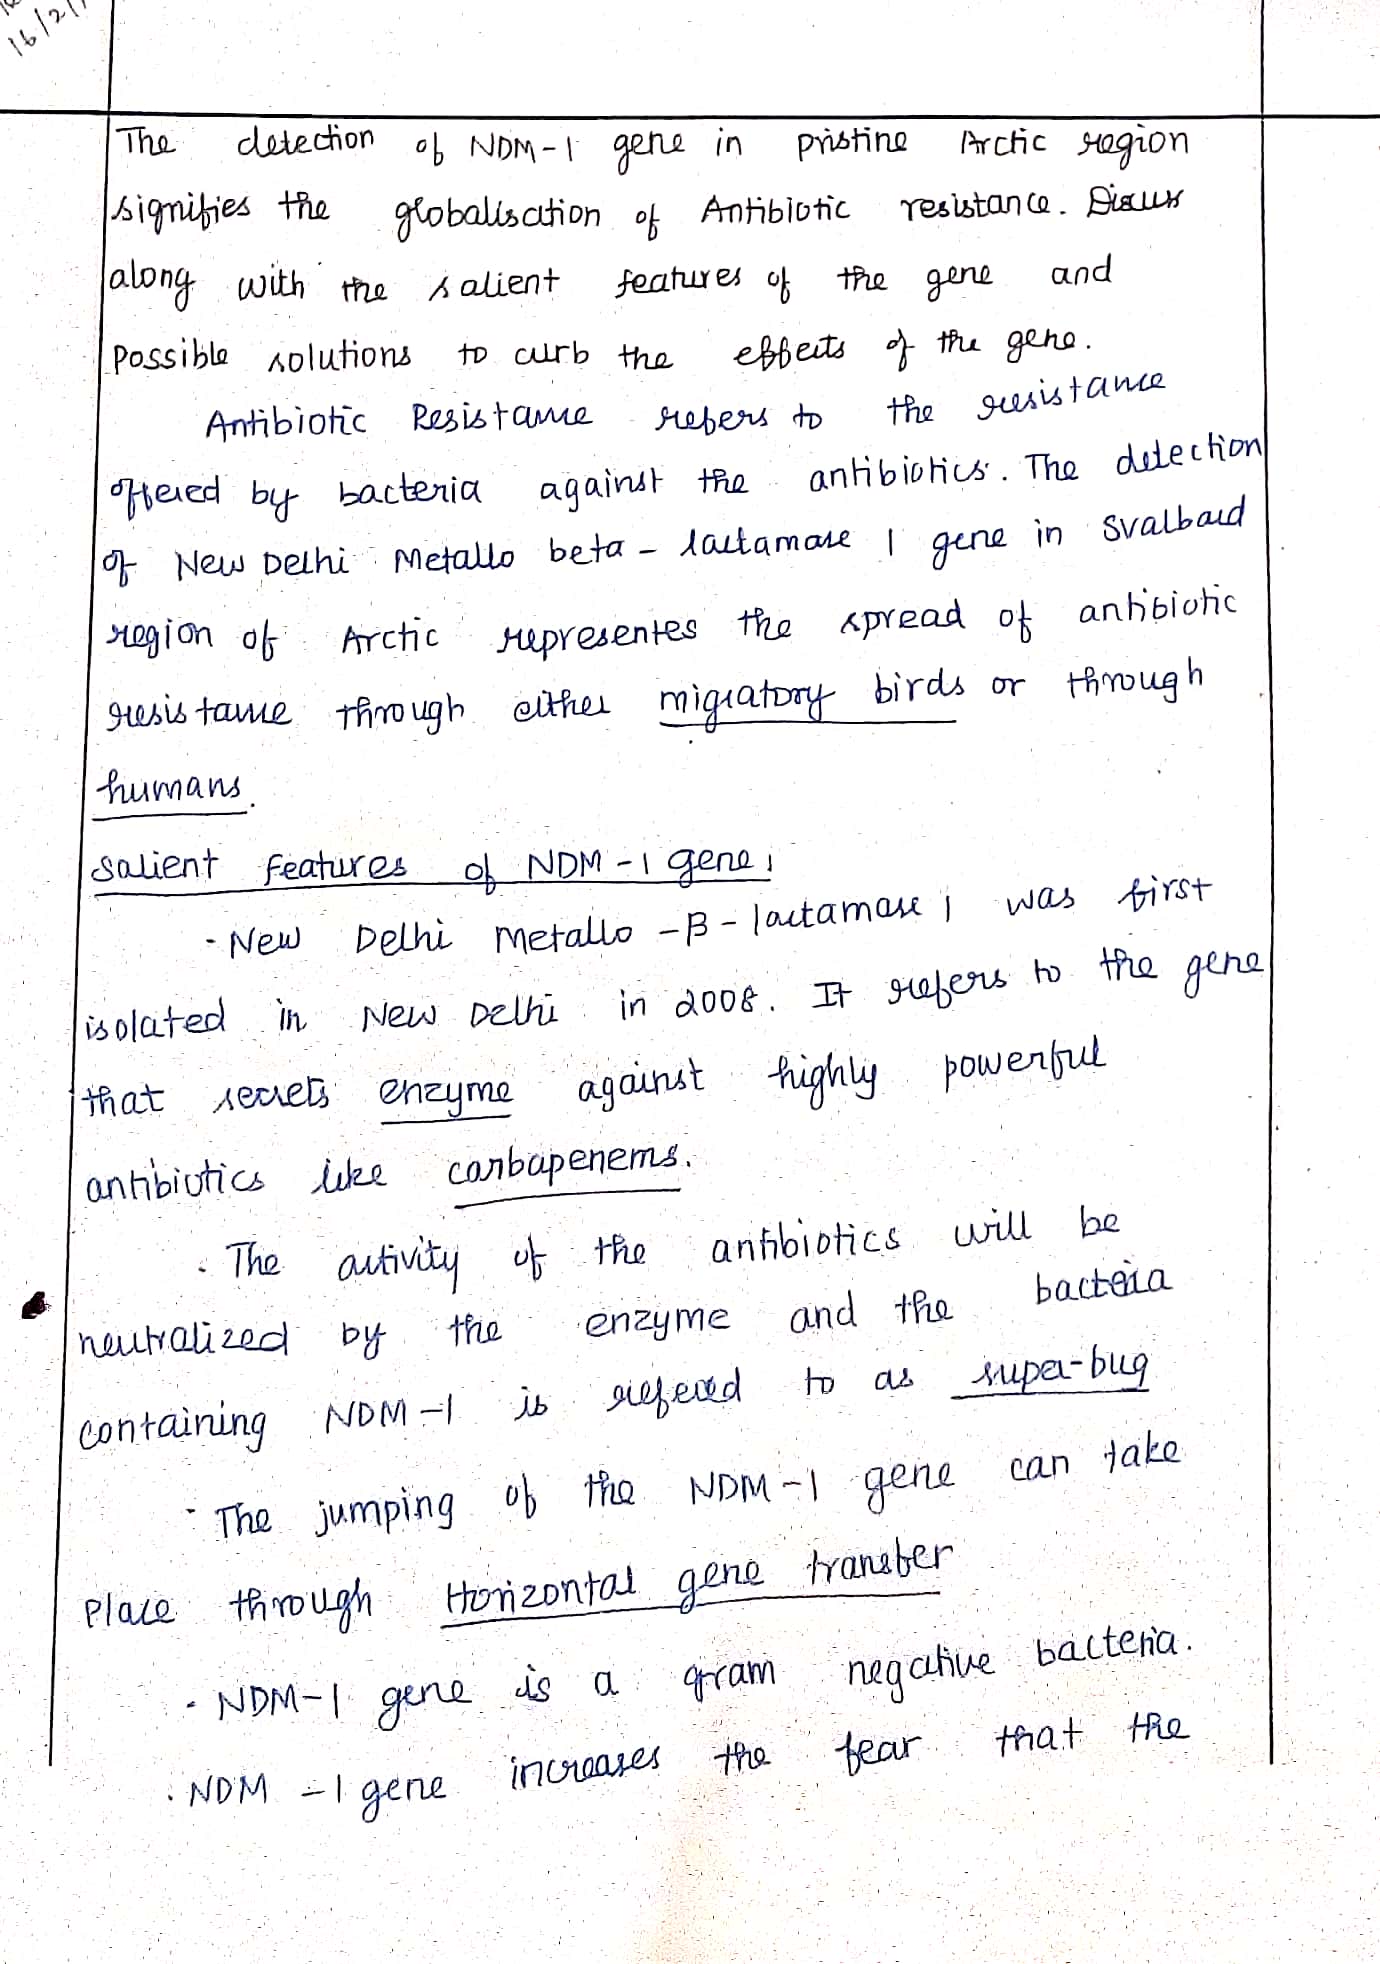 16/2/
The detection of NDM-1 gene in pristine Arctic region
signifies the globalisation of Antibiotic resistance. Discuss
along with the salient features of the gene and
possible solutions to curb the effects of the gene.
Antibiotic Resistance refers to the resistance
offered by bacteria against the antibiotics. The detection
of New Delhi Metallo beta - lactamase 1 gene in Svalbard
region of Arctic representes the spread of antibiotic
resistance through either migratory birds or through
humans.
Salient features of NDM-1 gene:
- New Delhi Metallo -β- lactamase 1 was first
isolated in New Delhi in 2008. It refers to the gene
that secrets enzyme against highly powerful
antibiotics like carbapenems.
. The activity of the antibiotics will be
neutralized by the enzyme and the bacteria
containing NDM-1 is refered to as super-bug
- The jumping of the NDM-1 gene can take
Place through Horizontal gene transfer
- NDM-1 gene is a gram negative bacteria.
. NDM-1 gene increases the fear that the